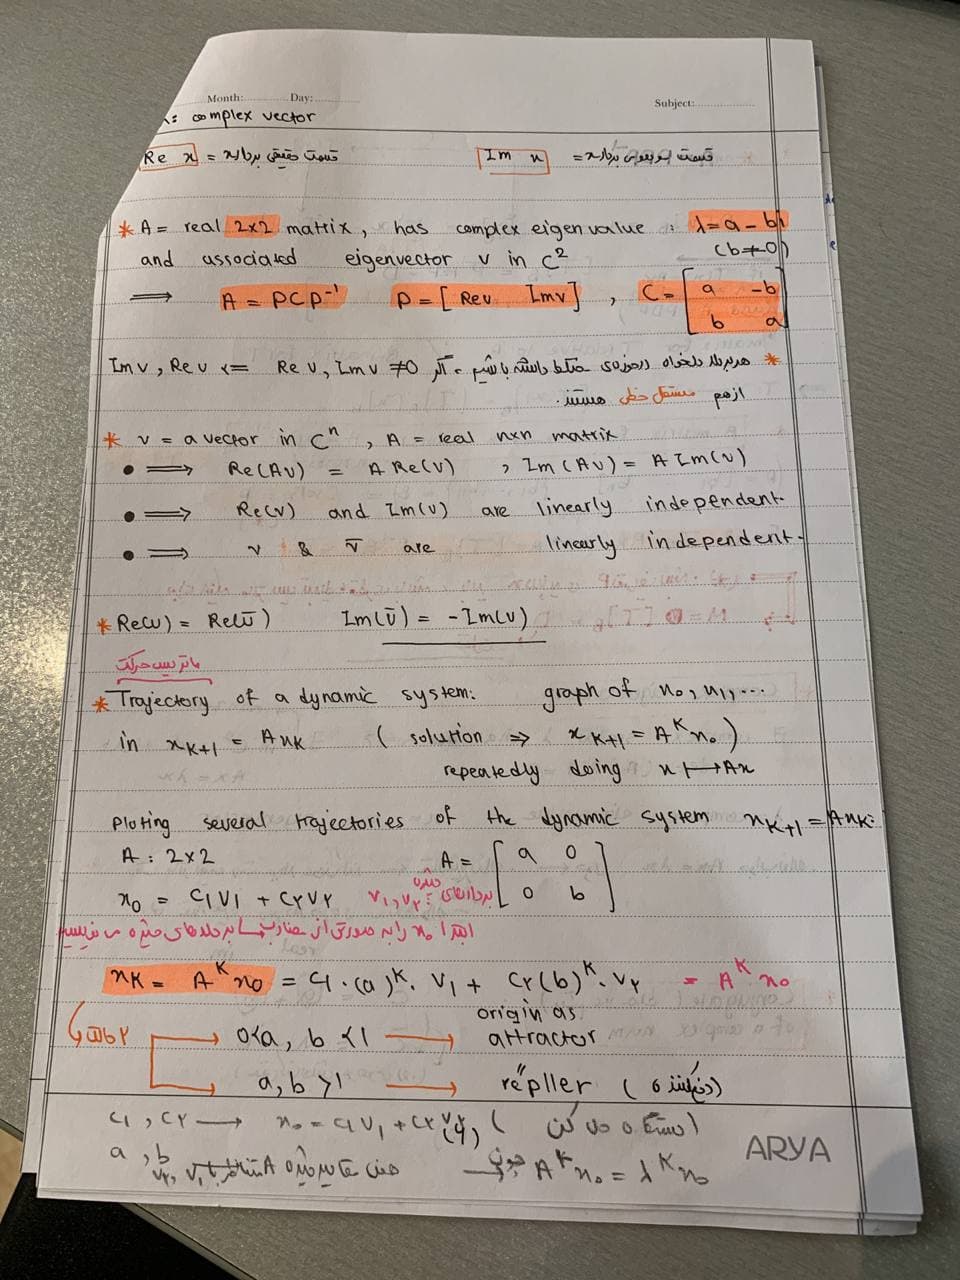 Month: Day: Subject:
: complex vector
Re x = قسمت حقیقی بردار x Im x = قسمت موهومی بردار x
* A = real 2x2 matrix, has complex eigen value : λ = a - bi
and associated eigenvector v in C² (b≠0)
⟹ A = PCP⁻¹ P = [Rev Imv] , C = [a -b
b a]
* هر بردار دلخواه مختلط داشته باشیم ، اگر Re v, Im v ≠ 0 => Im v, Re v
ازهم مستقل خطی هستند.
* v = a vector in Cⁿ , A = real nxn matrix
• ⟹ Re(Av) = A Re(v) , Im(Av) = A Im(v)
• ⟹ Re(v) and Im(v) are linearly independent.
• ⟹ v & v̅ are linearly independent.
* Re(v) = Re(v̅) Im(v̅) = -Im(v)
ماتریس حرکت
* Trajectory of a dynamic system: graph of x₀, x₁, ...
in x_{K+1} = Ax_K ( solution ⇒ x_{K+1} = A^K x₀ )
repeatedly doing x ⟼ Ax
Ploting several trajectories of the dynamic system x_{K+1} = Ax_K:
A : 2x2 A = [a 0
0 b]
x₀ = c₁v₁ + c₂v₂ v₁, v₂ : بردارهای ویژه
ابتدا x₀ را به صورتی از بردارهای ویژه می نویسیم
x_K = A^K x₀ = c₁.(a)^K. v₁ + c₂(b)^K. v₂ = A^K x₀
0<a, b<1 → origin as attractor
a, b >1 → repller (دفع کننده)
c₁, c₂ → x₀ = c₁v₁ + c₂v₂ ( دستگاه حل کن)
a, b همان مقادیر ویژه A متناظر با v₁, v₂ چون A^K x₀ = λ^K x₀
ARYA